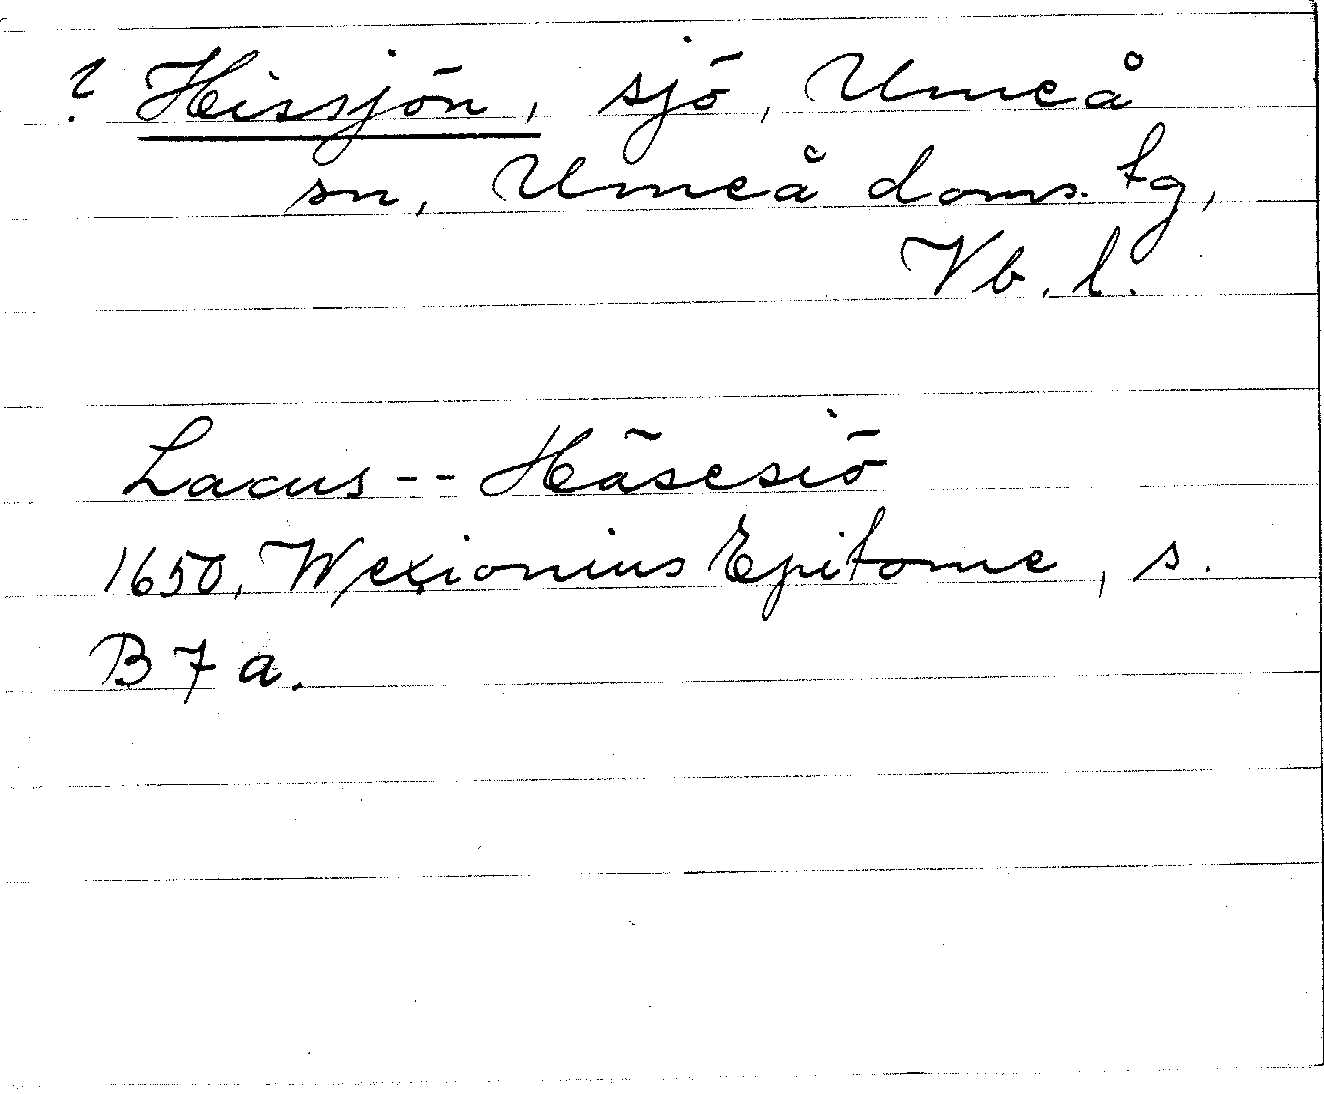 ? Hissjön, sjö, Umeå
sn, Umeå doms. tg,
Vb. l.
Lacus -- Häsesiö
1650, Wexionius Epitome, s.
B 7 a.